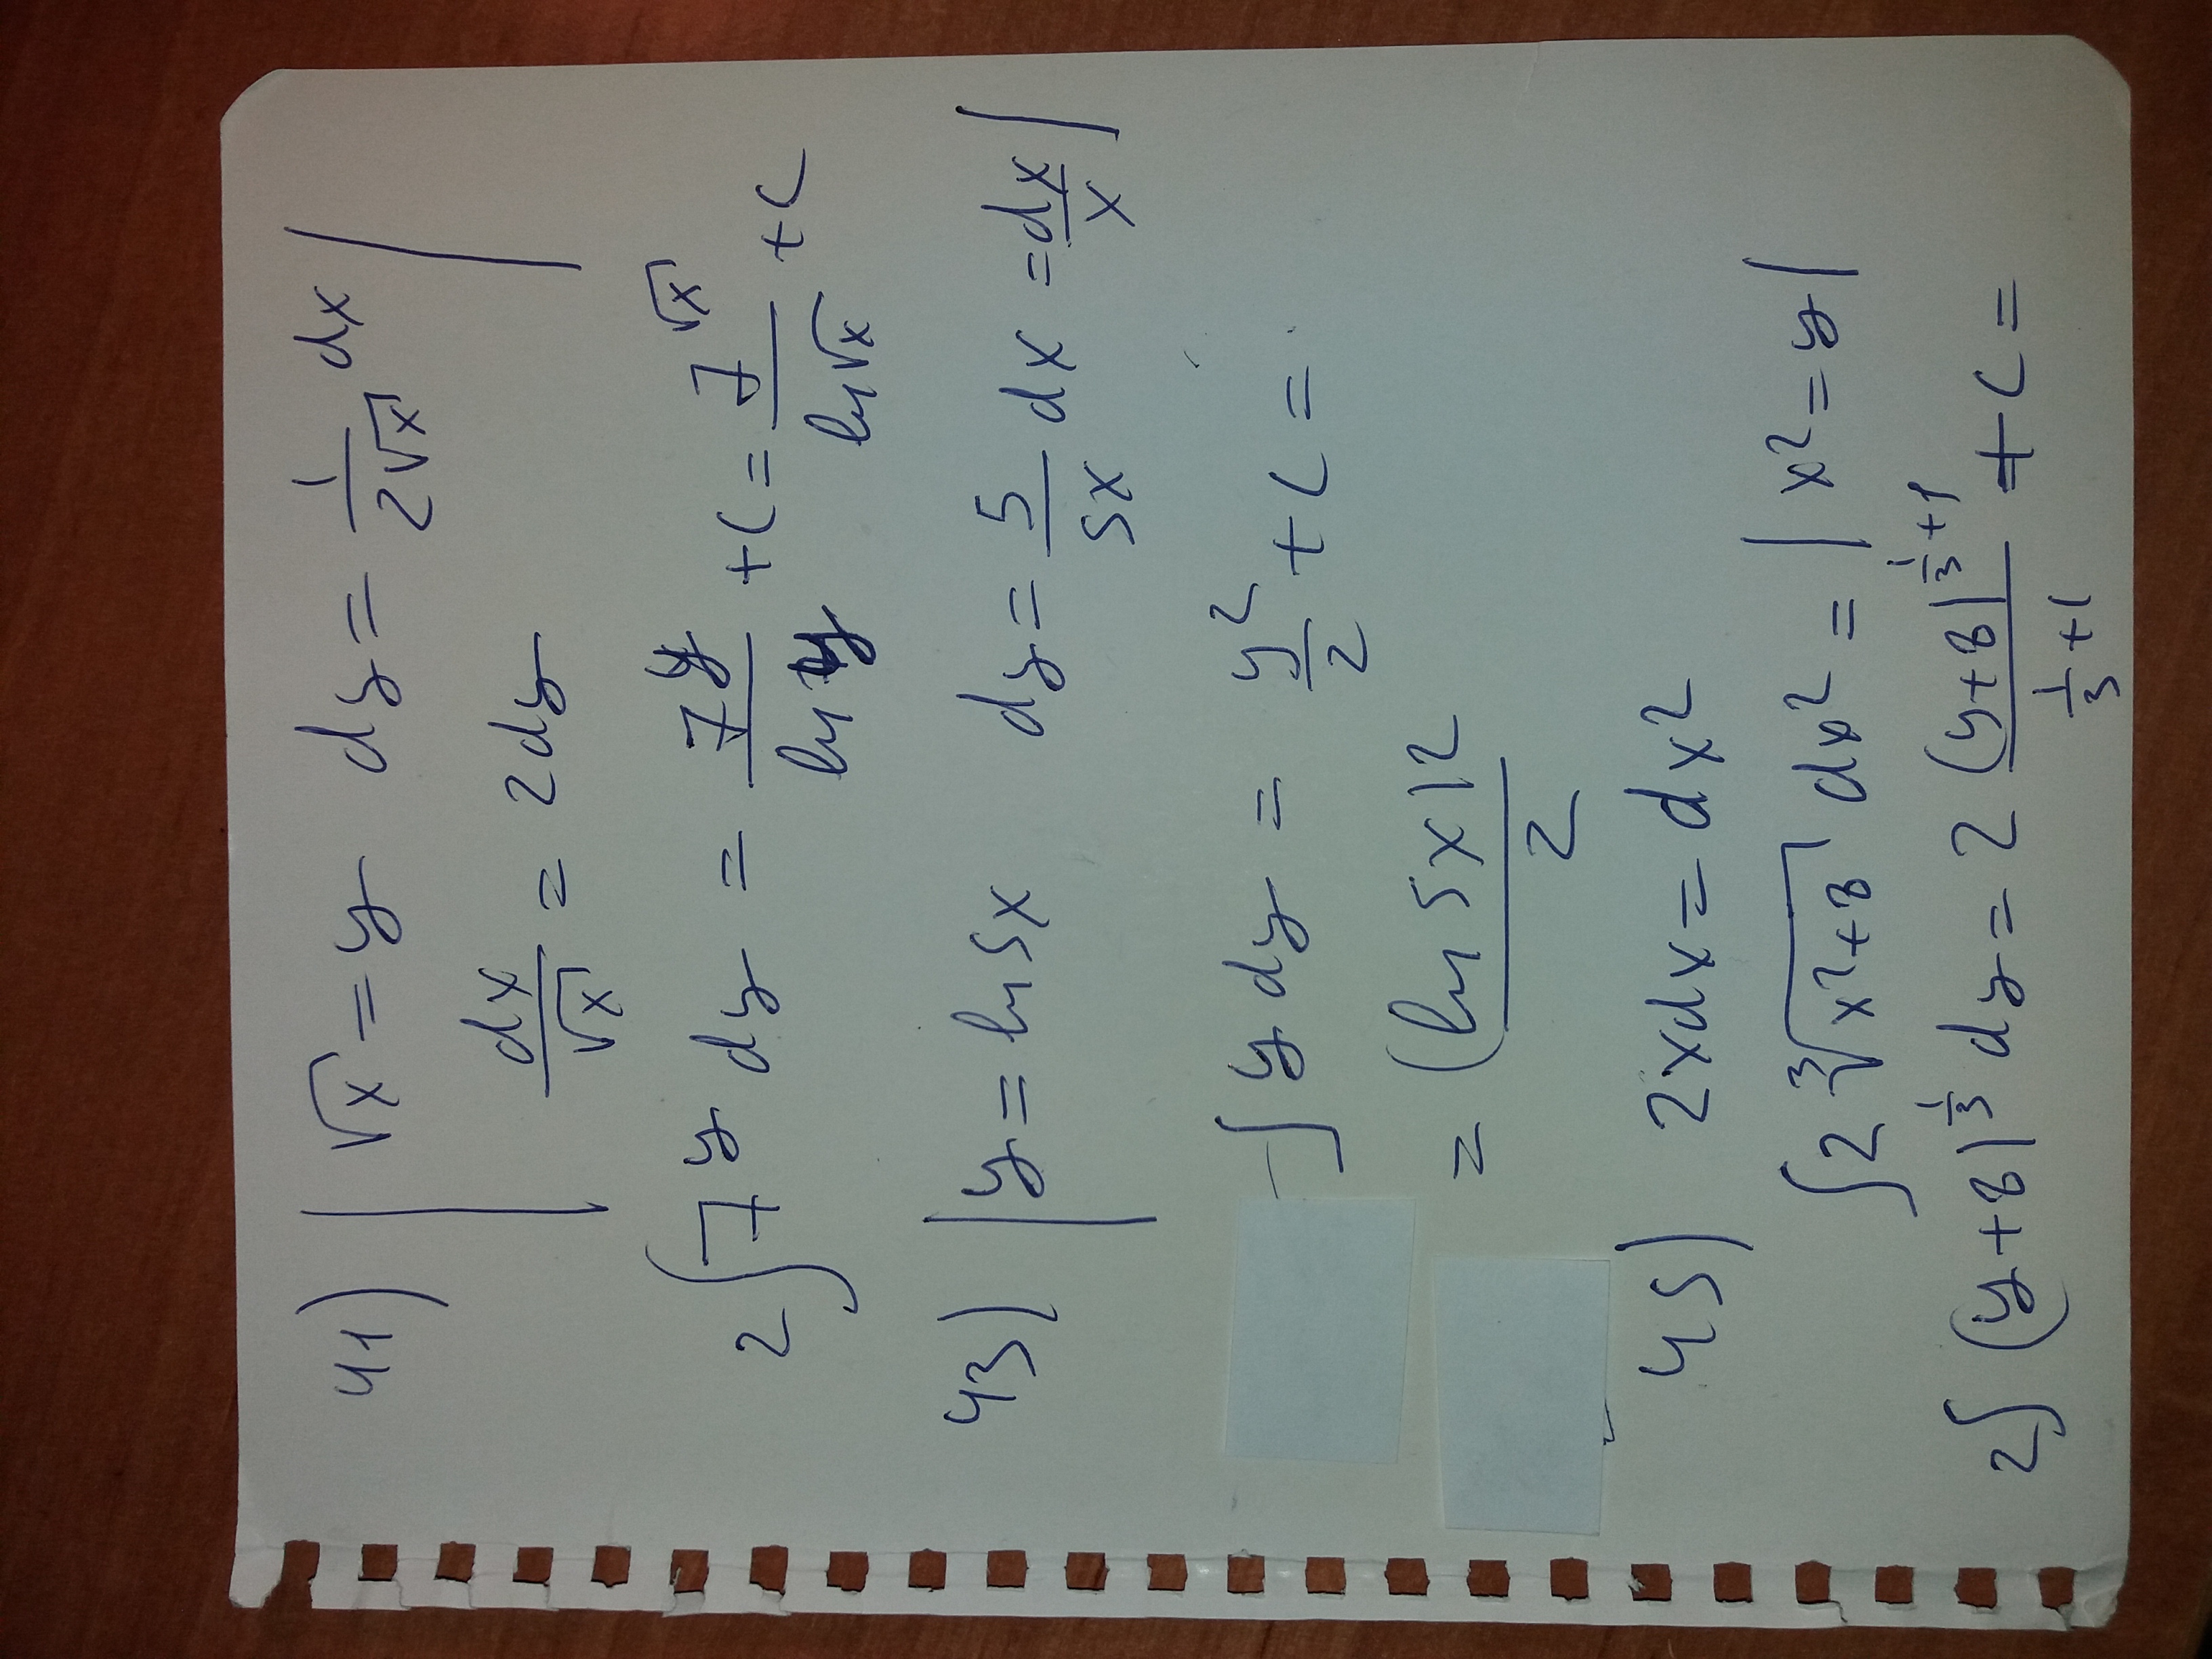 41) | √x = y dy = 1/(2√x) dx |
dx/√x = 2dy
2∫7^y dy = 7^y/ln y + C = 7^√x/ln √x + C
43) | y = ln 5x dy = 5/5x dx = dx/x |
∫ y dy = y²/2 + C =
= (ln 5x)²/2
45) 2xdx = dx²
∫2 ³√(x²+8) dx² = | x² = y |
2∫(y+8)^(1/3) dy = 2 (y+8)^(1/3+1)/(1/3+1) + C =